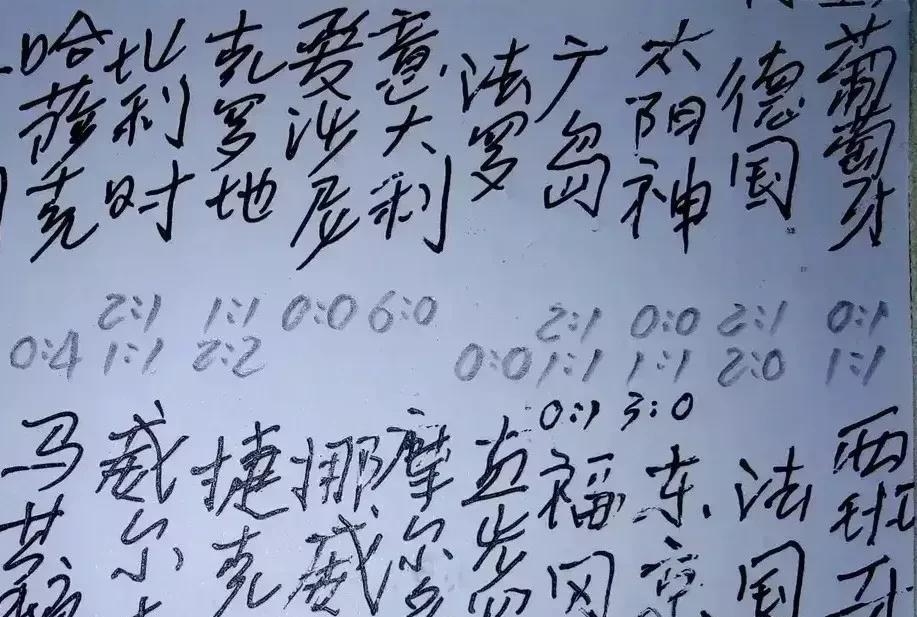 哈萨克
比利时
克罗地
爱沙尼
意大利
法罗
广岛
太阳神
德国
葡萄牙
2:1 1:1 0:0 6:0 2:1 0:0 2:1 0:1
0:4 1:1 2:2 0:0 1:1 1:1 2:0 1:1
0:1 3:0
马其
威尔
捷克
挪威
摩尔多
福冈
东京
法国
西班牙